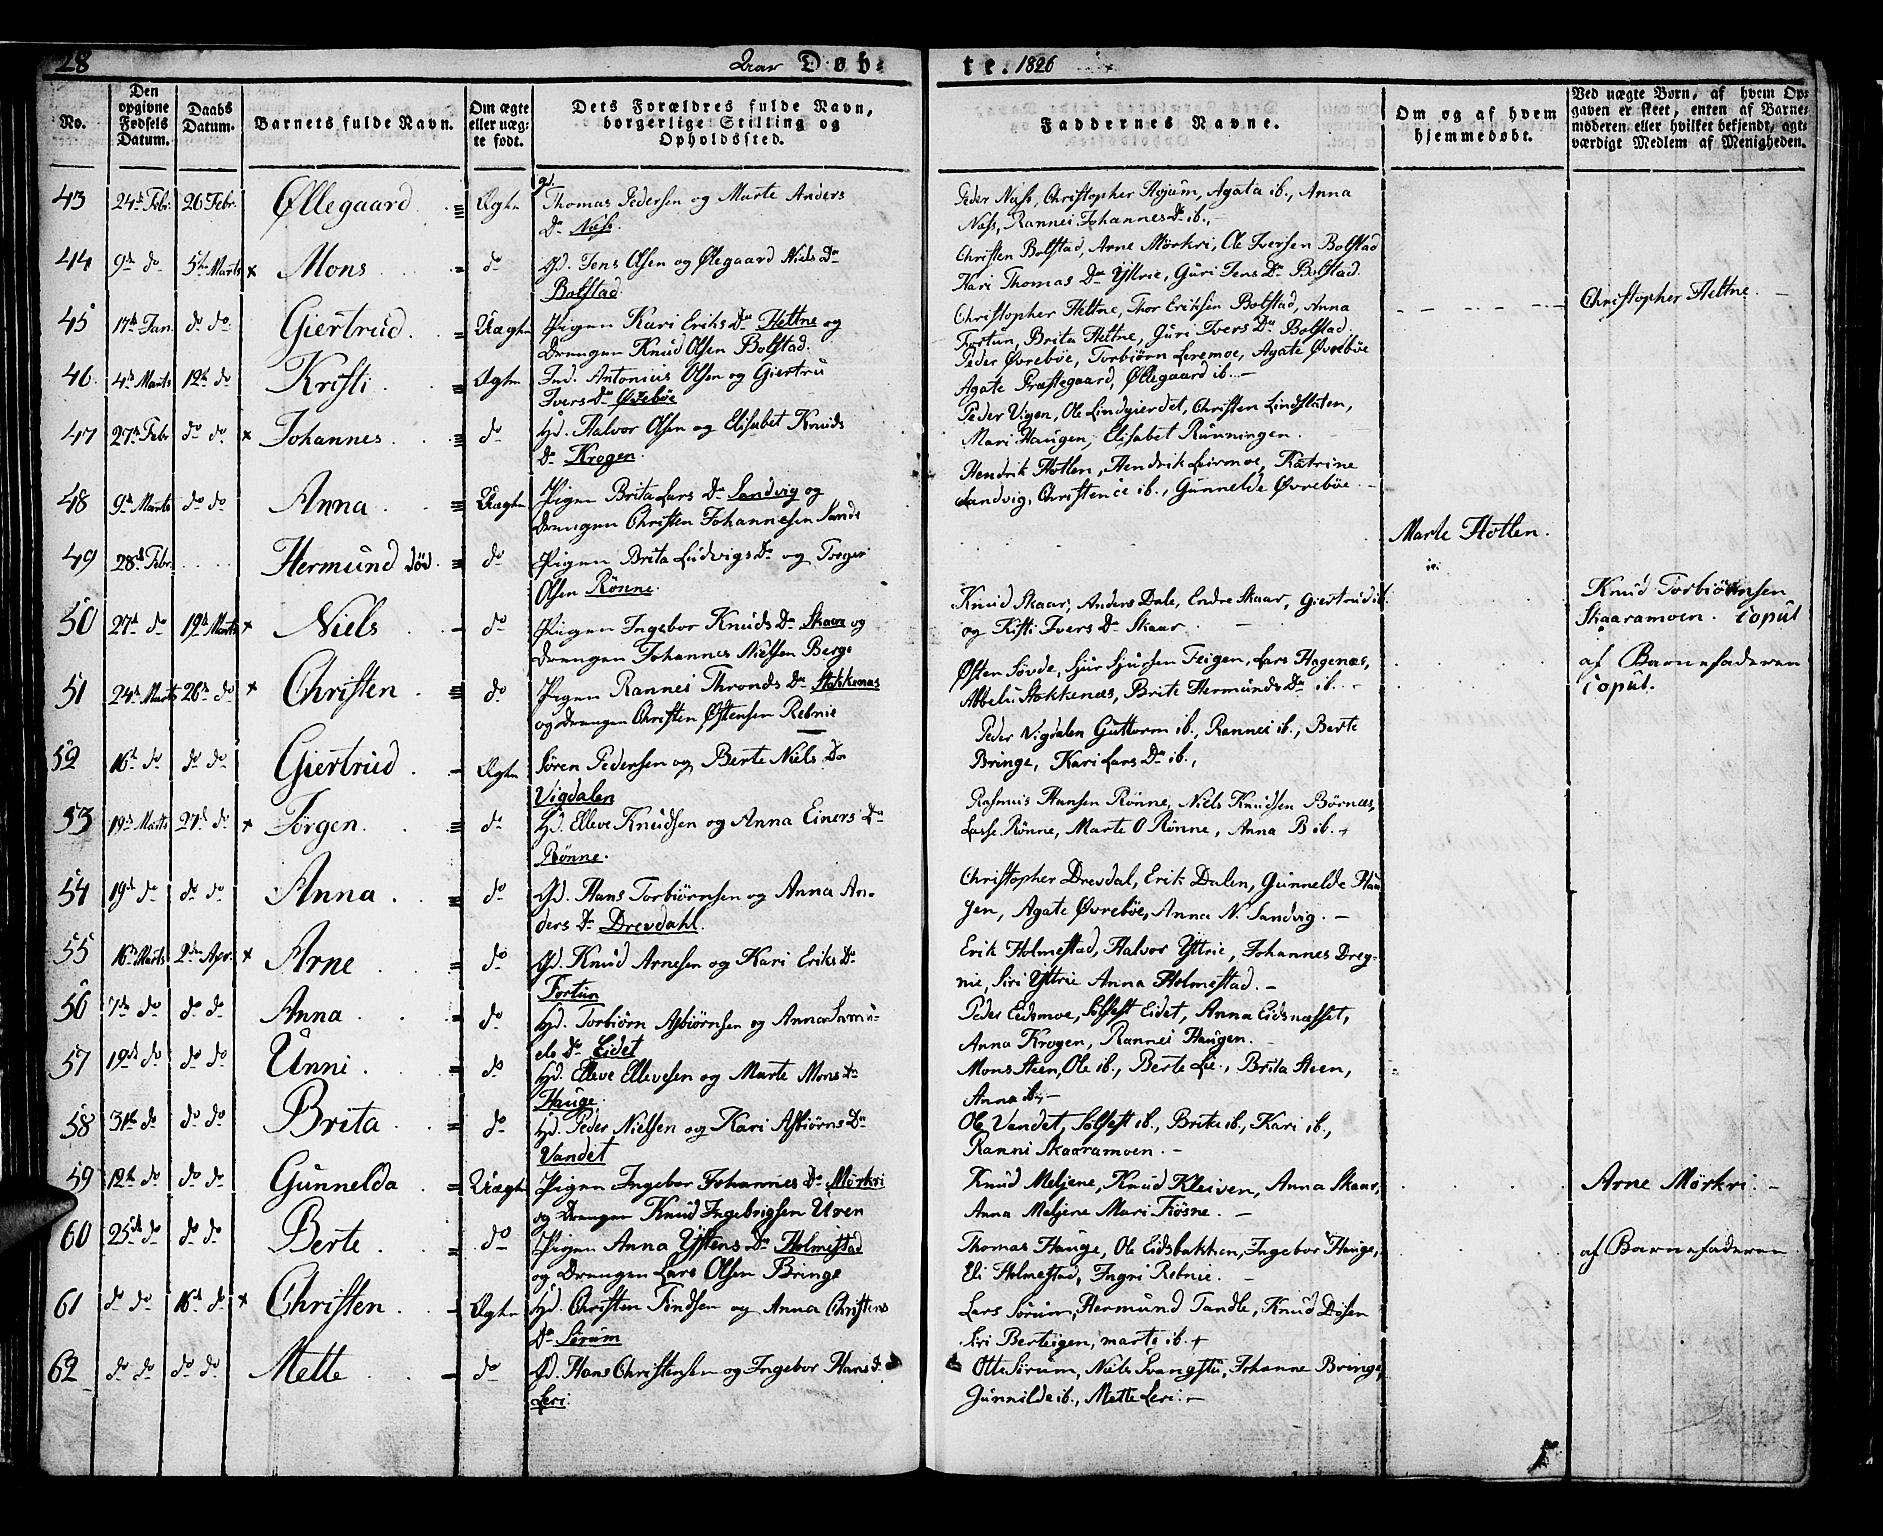 28 Aar Døb= te. 1826
No. | Den opgivne Fødsels Datum. | Daabs Datum. | Barnets fulde Navn. | Om ægte eller uæg= te født. | Dets Forældres fulde Navn, borgerlige Stilling og Opholdssted. | Faddernes Navne. | Om og af hvem hjemmedøbt. | Ved uægte Børn, af hvem Op= gaven er skeet, enten af Barne= moderen eller hvilket bekjendt, agt= værdigt Medlem af Menigheden.
43 24de Febr. 26 Febr. Øllegaard Ægte Gd. Thomas Pedersen og Marte Anders Peder Næss, Christopher Højum, Agata ib., Anna
Dr. Næss. Næss, Rannei Johannes Dr. ib.,
44 9de do 5te Marts x Mons do Gd. Jens Olsen og Ølegaard Niels Dr Christen Bolstad, Arne Mørkri, Ole Iversen Bolstad
Bolstad. Kari Thomas Dr Yttrie, Guri Jens Dr. Bolstad.
45 17de Jan. do do Giertrud Uægte Pigen Kari Eriks Dr Hettne og Christopher Hettne, Thor Eriksen Bolstad, Anna Christopher Hettne
Drengen Knud Olsen Bolstad. Fortun, Brita Hettne, Guri Ivers Dr Bolstad.
46 4de Marts 12te do Kristi Ægte Ind. Antonius Olsen og Giertru Peder Øvrebøe, Torbiørn Leremoe, Agate Øvrebøe
Ivers Dr Øvrebøe Agate Præstegaard, Øllegaard ib.
47 27de Febr do do x Johannes do Hd. Halvor Olsen og Elisabet Knuds Peder Vigen, Ole Lindgierdet, Christen Lindslaten,
Dr Krogen. Mari Haugen, Elisabet Runningen.
48 9de Marts do do Anna Uægte Pigen Brita Lars Dr Sandvig og Hendrik Hotlen, Hendrik Leirmoe, Katrine
Drengen Christen Johannesen Sande Sandvig, Christence ib., Gunnelde Øvrebøe.
49 28de Febr. Hermund død do Pigen Brita Ludvigs Dr og Torger Marte Hotlen.
Olsen Rönne.
50 27de do 19de Marts x Niels do Pigen Ingebor Knuds Dr Skaar og Knud Skaar, Anders Dale, Endre Skaar, Giertrud ib. Knud Torbiørnsen
Drengen Johannes Nielsen Berge og Kisti Ivers Dr Skaar Skaaramoen. copul
51 24de Marts 26de do x Christen do Pigen Rannei Thronds Dr Stokkenæs Østen Søvde, Sjur Sjursen Feigen, Lars Hagenæs, af Barnefaderen
og Drengen Christen Østensen Rebnie Abbelu Stokkenæs, Brite Hermunds Dr ib. copul.
52 16de do do do Giertrud Ægte Søren Pedersen og Berte Niels Dr Peder Vigdalen Guttorm ib., Rannei ib., Berte
Vigdalen Bringe, Kari Lars Dr ib.,
53 19de Marts 27de do x Jørgen do Hd. Elleve Knudsen og Anna Einers Dr Rasmus Hansen Rönne, Niels Knudsen Børnæs,
Rönne. Lasse Rönne, Marte O Rönne, Anna B ib.
54 19de do do do Anna do Gd. Hans Torbiørnsen og Anna An= Christopher Drevdal, Erik Dalen, Gunnelde Hau
ders Dr Drevdahl. gen, Agate Øvrebøe, Anna N. Sandvig.
55 16de Marts 2den Apr. x Arne do Gd. Knud Arnesen og Kari Eriks Dr Erik Holmestad, Halvor Yttrie, Johannes Dreg=
Fortun nie, Siri Yttrie Anna Holmestad.
56 7de do do do Anna do Hd. Torbiørn Asbiørnsen og Anna Samu= Peder Eidsmoe, Solfest Eidet, Anna Eidsnæsset,
els Dr Eidet Anna Krogen, Rannei Haugen.
57 19de do do do Unni do Hd. Elleve Ellevesen og Marte Mons Dr Mons Steen, Ole ib., Berte Lie., Brita Steen,
Hauge. Anna ib.
58 31te do do do Brita do Hd. Peder Nielsen og Kari Asbiørns Dr Ole Vandet, Solfest ib., Brita ib., Kari ib.,
Vandet Ranni Skaaramoen.
59 12te do do do Gunnelda Uægte Pigen Ingebor Johannes Dr Mørkri Knud Meljene, Knud Kleiven, Anna Skaar, Arne Mørkri.
og Drengen Knud Ingebrigsen Uren Anna Meljene Mari Fiøsne.
60 25de do do do Berte do Pigen Anna Ystens Dr Holmestad Thomas Hauge, Ole Eidsbakken, Ingebor Hauge, af Barnefaderen
og Drengen Lars Olsen Bringe Eli Holmestad, Ingri Rebnie.
61 do do 16de do x Christen Ægte Hd. Christen Findsen og Anna Christens Lars Sørum, Hermund Tandle, Knud Døsen
Dr Sørum Siri Berteigen, marte ib.
62 do do do do Mette do Gd. Hans Christensen og Ingebor Hans d. Otte Sørum, Niels Svangstu, Johanne Bringe,
Leri. Gunnilde ib., Mette Leri.